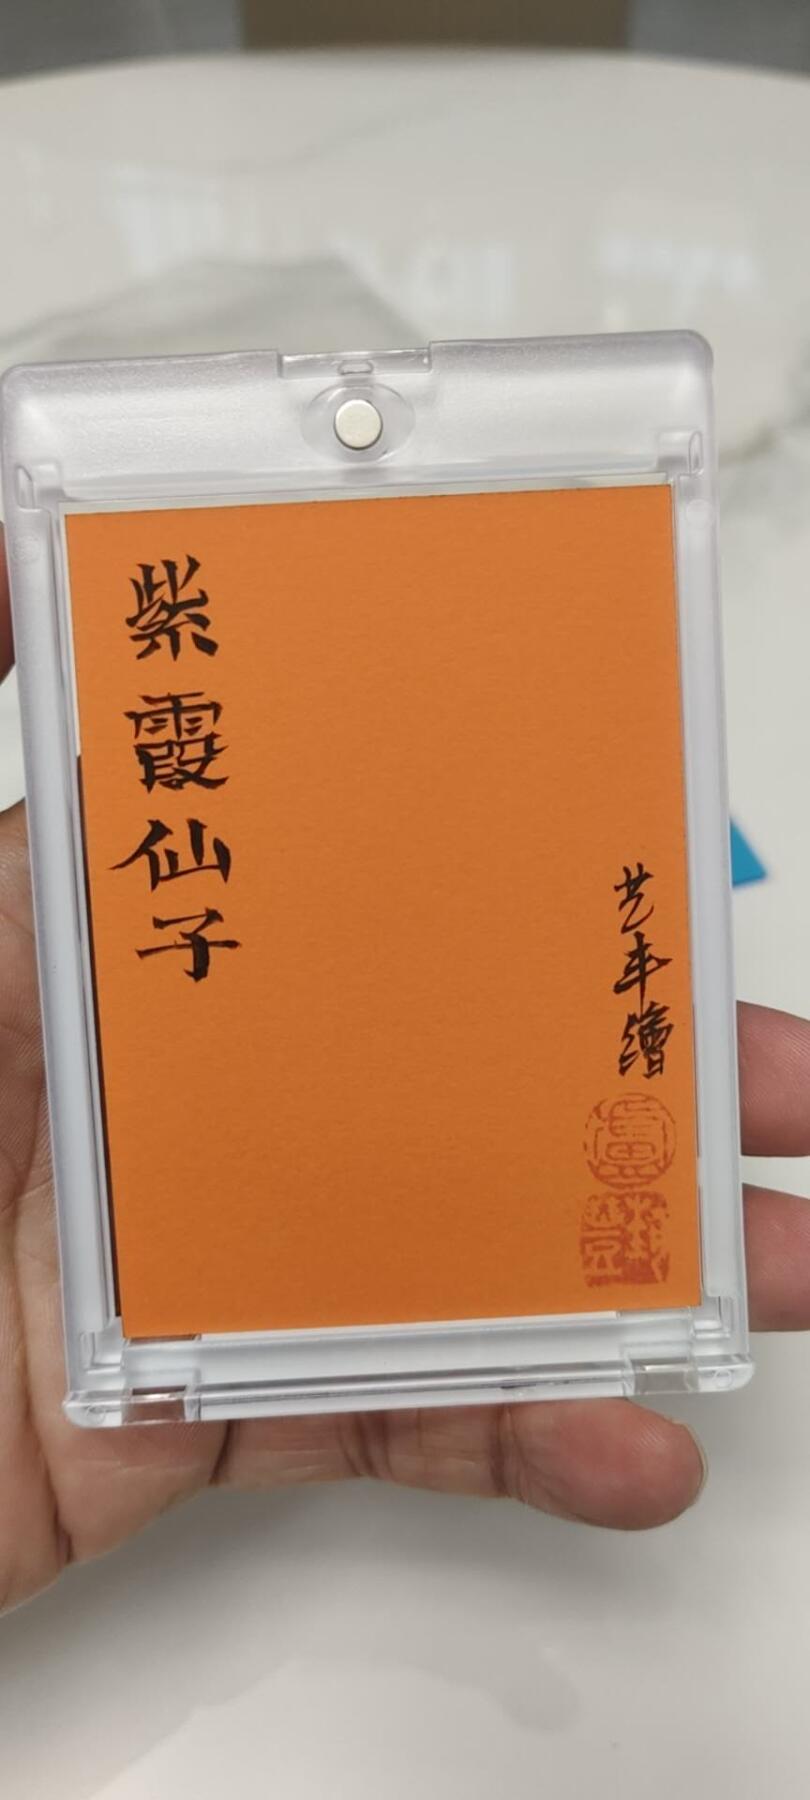 紫霞仙子
艺丰繪